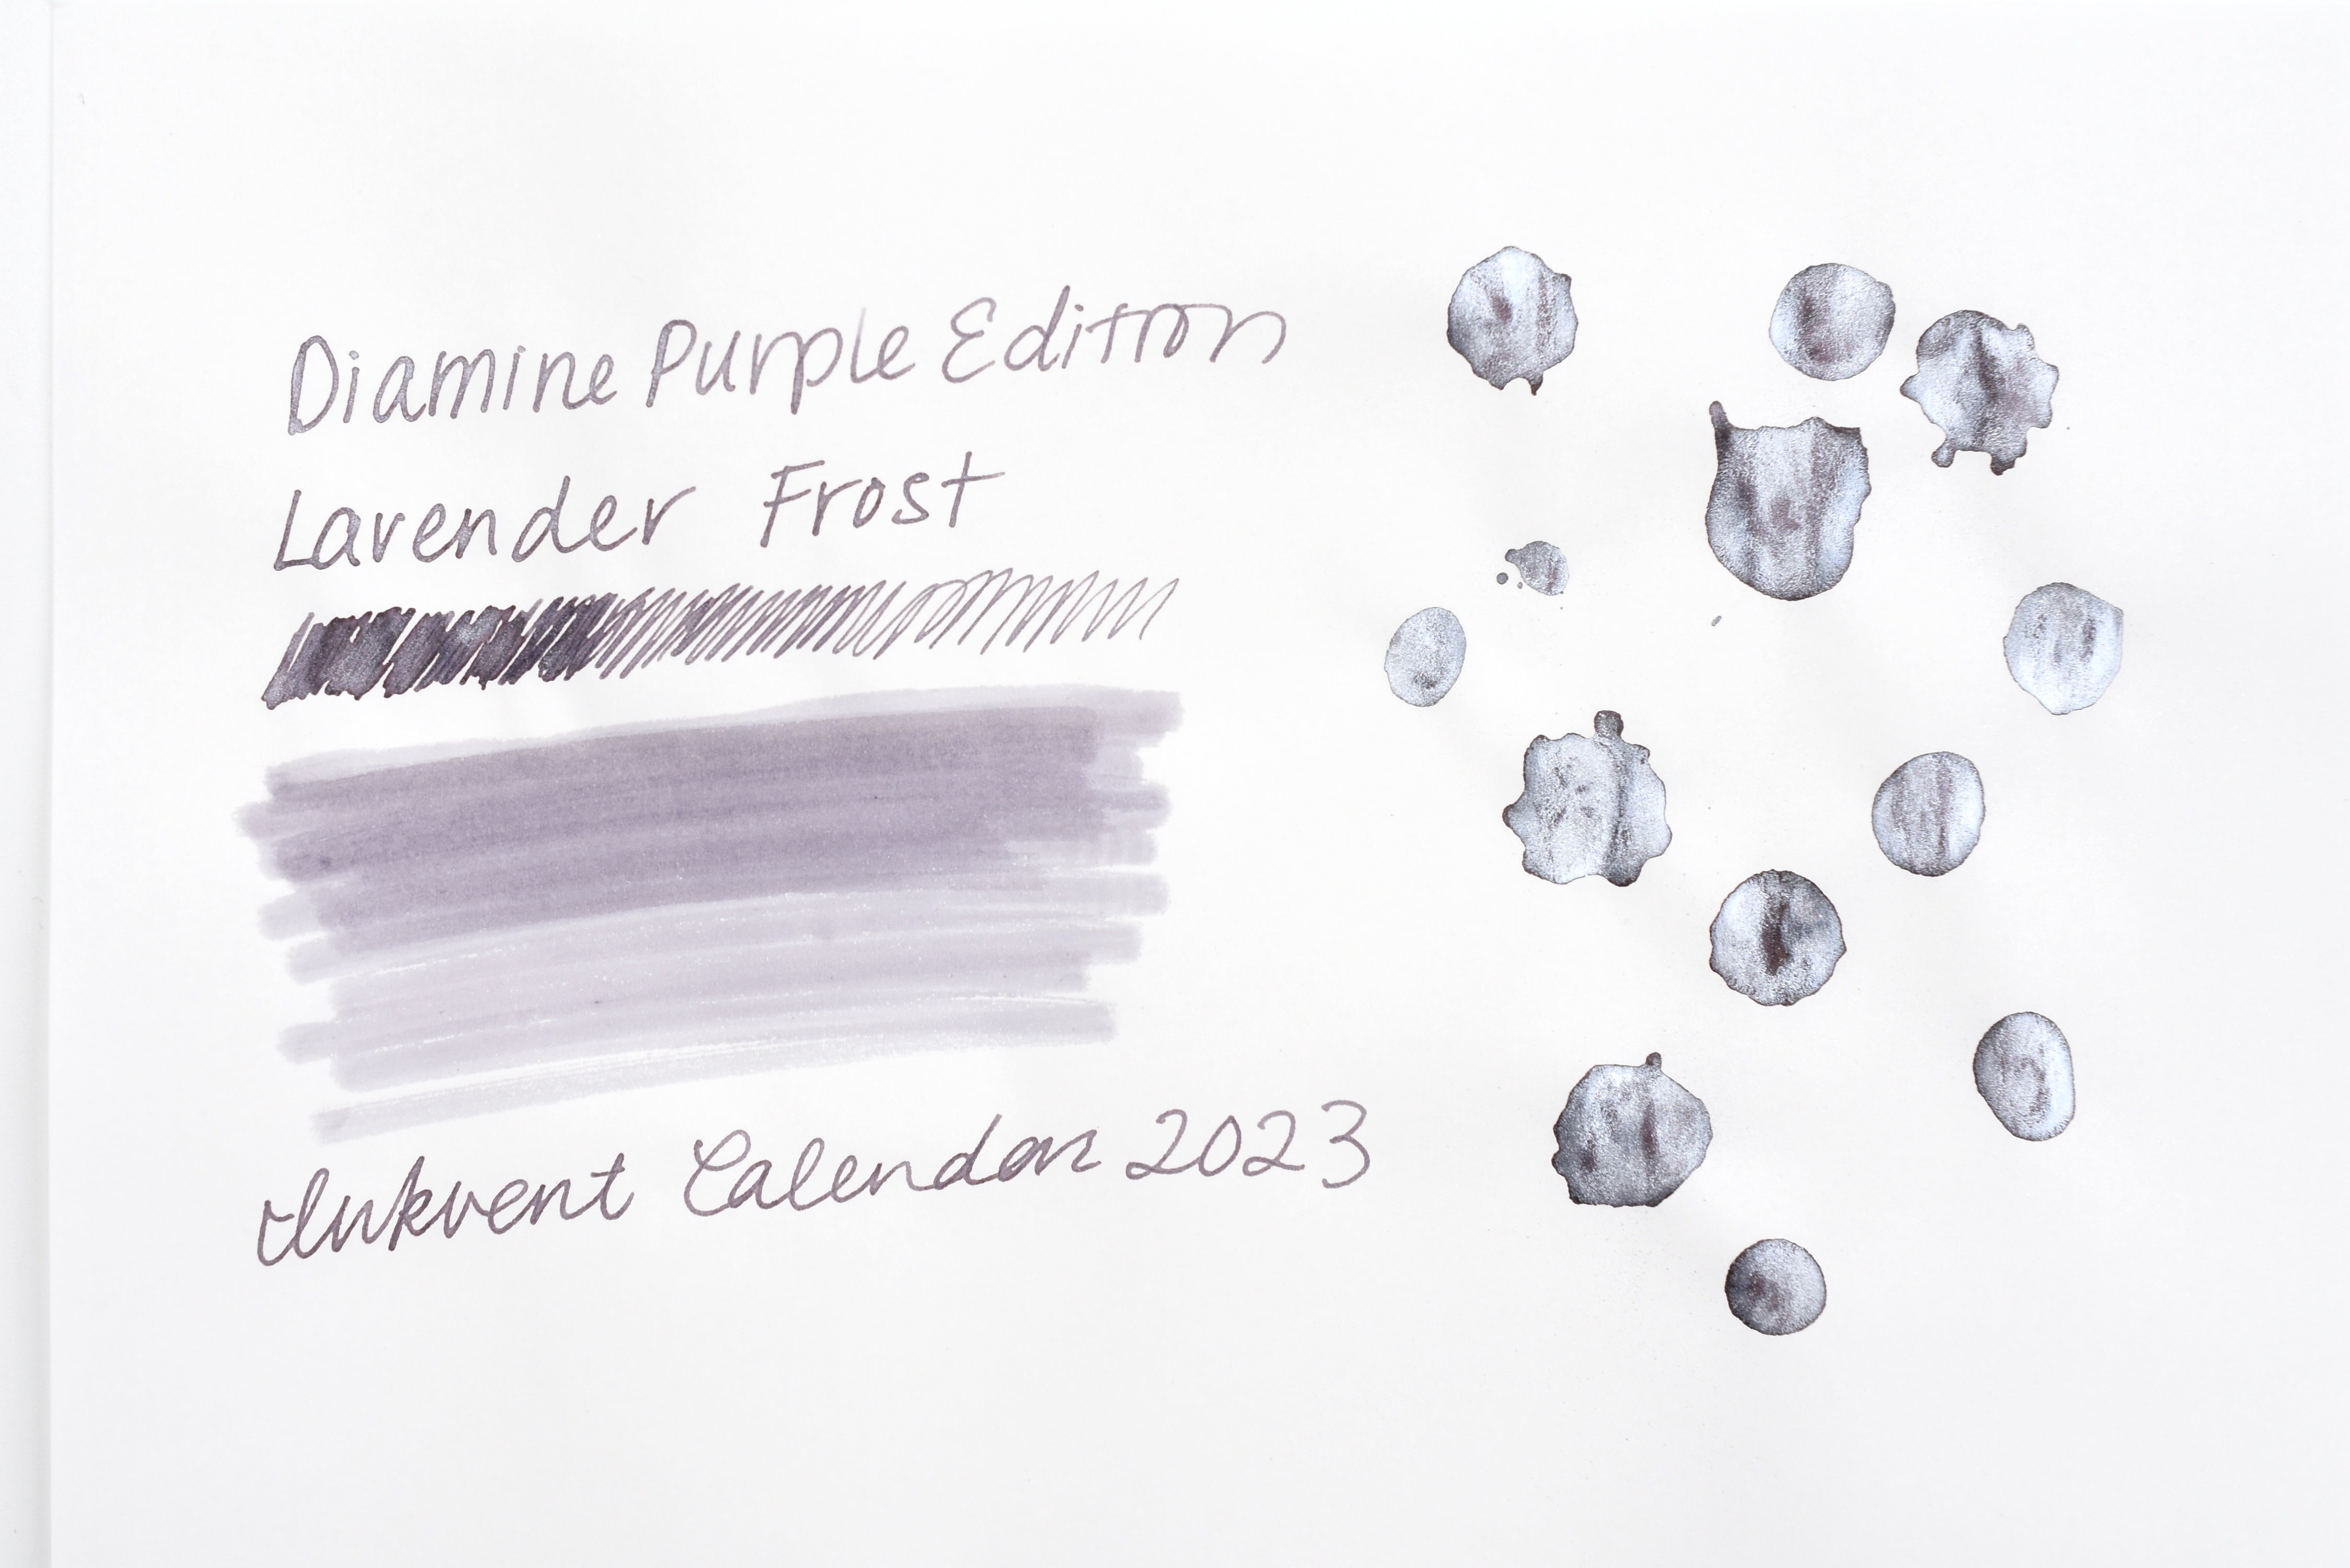 Diamine Purple Edition
Lavender Frost
Inkvent Calendar 2023